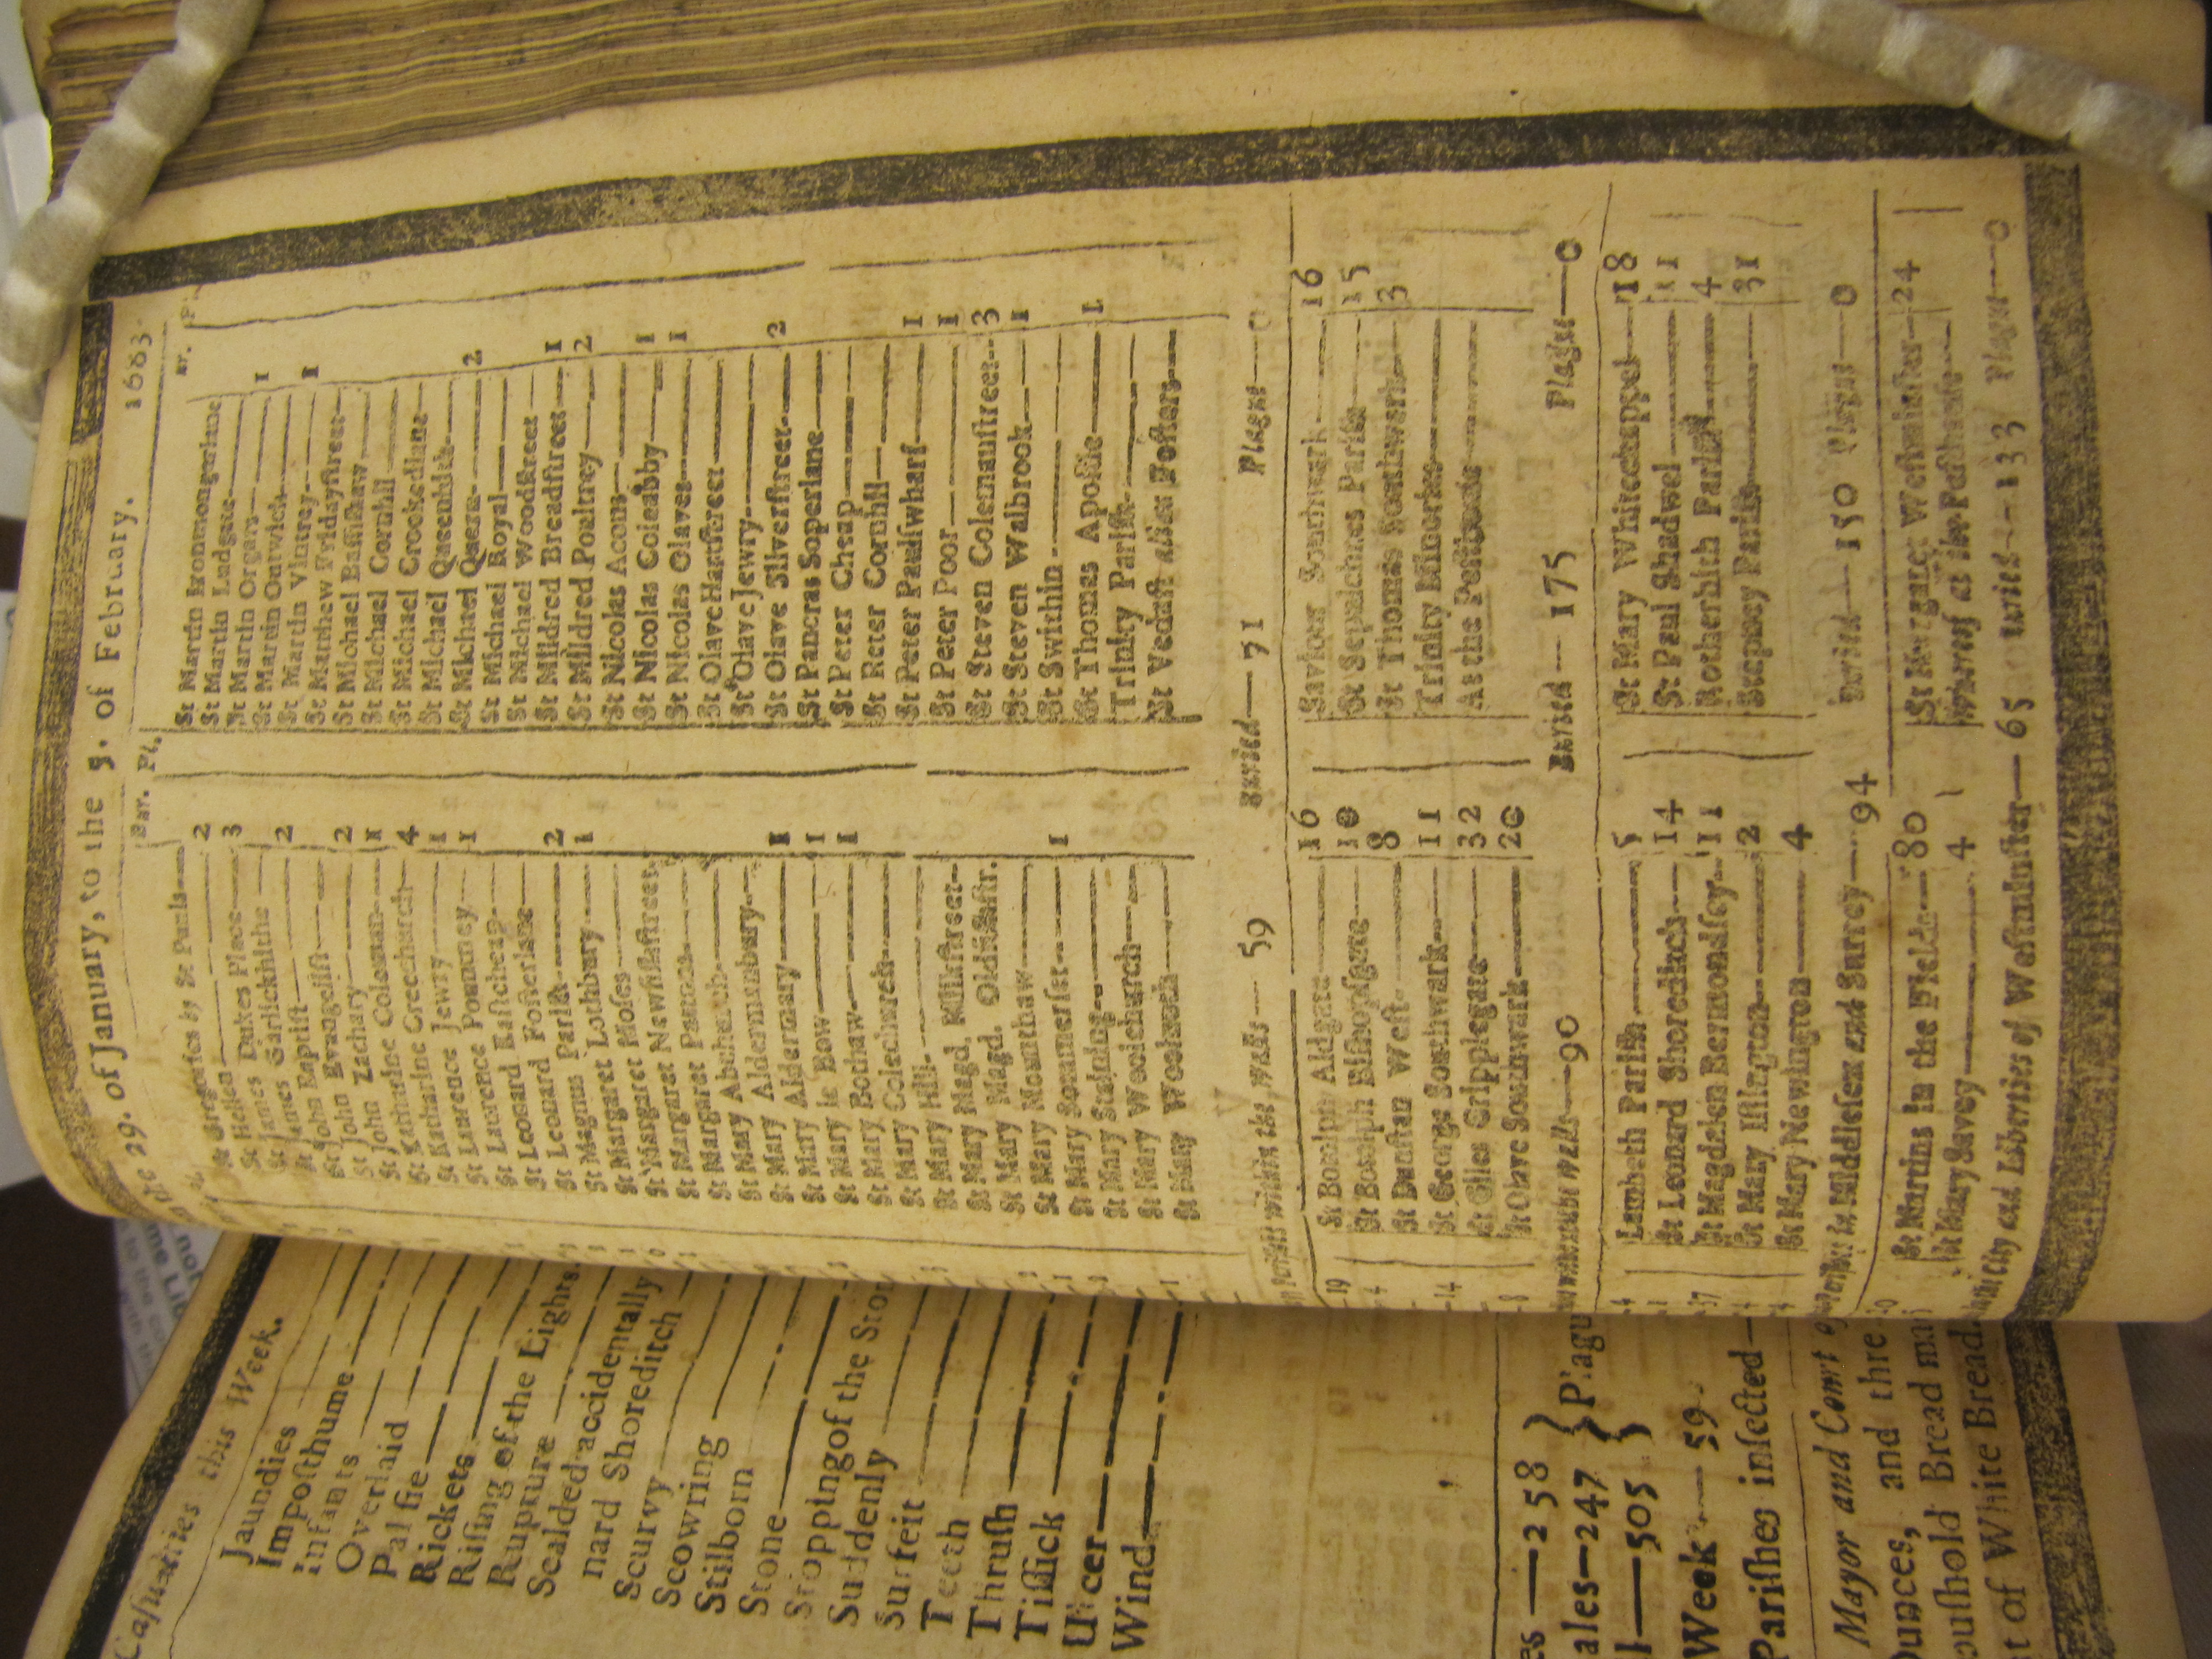 the 29. of January, to the 5. of February. 1663
Bur. Pl.
St Gregories by St Pauls—
St Hellen— 2
St James Dukes Place— 3
St James Garlickhithe—
St John Baptist— 2
St John Evangelist—
St John Zachary— 2
St Katharine Coleman— 1
St Katharine Creechurch— 4
St Laurence Jewry— 1
St Laurence Pountney— 1
St Leonard Eastcheap—
St Leonard Fosterlane—
St Magnus Parish— 2
St Margaret Lothbury— 1
St Margaret Moses—
St Margaret Newfishstreet
St Margaret Pattons—
St Mary Abchurch—
St Mary Aldermanbury—
St Mary Aldermary— 1
St Mary le Bow— 1
St Mary Bothaw— 1
St Mary Colechurch—
St Mary Hill—
St Mary Magd. Milkstreet—
St Mary Magd. Oldfishstr.
St Mary Mounthaw—
St Mary Sommerset— 1
St Mary Staining—
St Mary Woolchurch—
St Mary Woolnoth—
St Martin Ironmongerlane
St Martin Ludgate—
St Martin Orgars— 1
St Martin Outwich—
St Martin Vintrey— 1
St Matthew Fridaystreet—
St Michael Bassishaw—
St Michael Cornhil—
St Michael Crookedlane—
St Michael Queenhith—
St Michael Quern— 2
St Michael Royal—
St Michael Woodstreet—
St Mildred Breadstreet— 1
St Mildred Poultrey— 2
St Nicolas Acons—
St Nicolas Coleabby— 1
St Nicolas Olaves— 1
St Olave Hartstreet—
St Olave Jewry—
St Olave Silverstreet— 2
St Pancras Soperlane—
St Peter Cheap—
St Peter Cornhil—
St Peter Paulswharf— 1
St Peter Poor— 1
St Steven Colemanstreet— 3
St Steven Walbrook— 1
St Swithin—
St Thomas Apostle— 1
Trinity Parish—
St Vedast alias Fosters—
within the walls— 59 Buried— 71 Plague—0
19
4
14
8
St Botolph Aldgate— 16
St Botolph Bishopsgate— 10
St Dunstan West— 8
St George Southwark— 11
St Giles Cripplegate— 32
St Olave Southwark— 20
Saviour Southwark— 16
St Sepulchres Parish— 15
St Thomas Southwark— 3
Trinity Minories—
At the Pesthouse—
without the walls—90 Buried— 175 Plague—0
4
1
37
4
4
Lambeth Parish— 5
St Leonard Shoreditch— 14
St Magdalen Bermondsey— 11
St Mary Islington— 2
St Mary Newington— 4
St Mary Whitechappel— 18
St Paul Shadwel— 11
Rotherhith Parish— 4
Stepney Parish— 31
in Middlesex and Surrey— 94 Buried— 150 Plague—0
St Martins in the Fields— 80
St Mary Savoy— 4
St Margaret Westminster— 24
Whereof at the Pesthouse—
City and Liberties of Westminster— 65 Buried— 133 Plague—0
Casualties this Week.
Jaundies
Imposthume
Infants
Overlaid
Palsie
Rickets
Rising of the Lights
Rupture
Scalded accidentally
nard Shoreditch
Scurvy
Scowring
Stilborn
Stone
Stopping of the Stom
Suddenly
Surfeit
Teeth
Thrush
Tissick
Ulcer
Wind
es —258
ales—247 } Plagu
l—505
Week— 59
Parishes infected—
Mayor and Court of
Ounces, and thre
oushold Bread m
t of White Bread